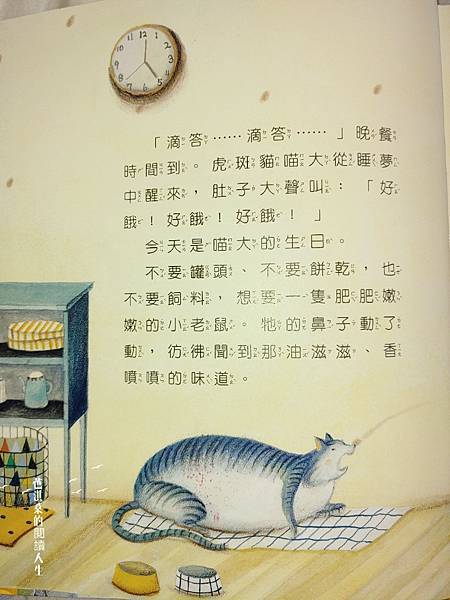 「滴答……滴答……」晚餐
時間到。虎斑貓喵大從睡夢
中醒來，肚子大聲叫：「好
餓！好餓！好餓！」
今天是喵大的生日。
不要罐頭、不要餅乾，也
不要飼料，想要一隻肥肥嫩
嫩的小老鼠。牠的鼻子動了
動，彷彿聞到那油滋滋、香
噴噴的味道。
芭淇桑的閱讀人生